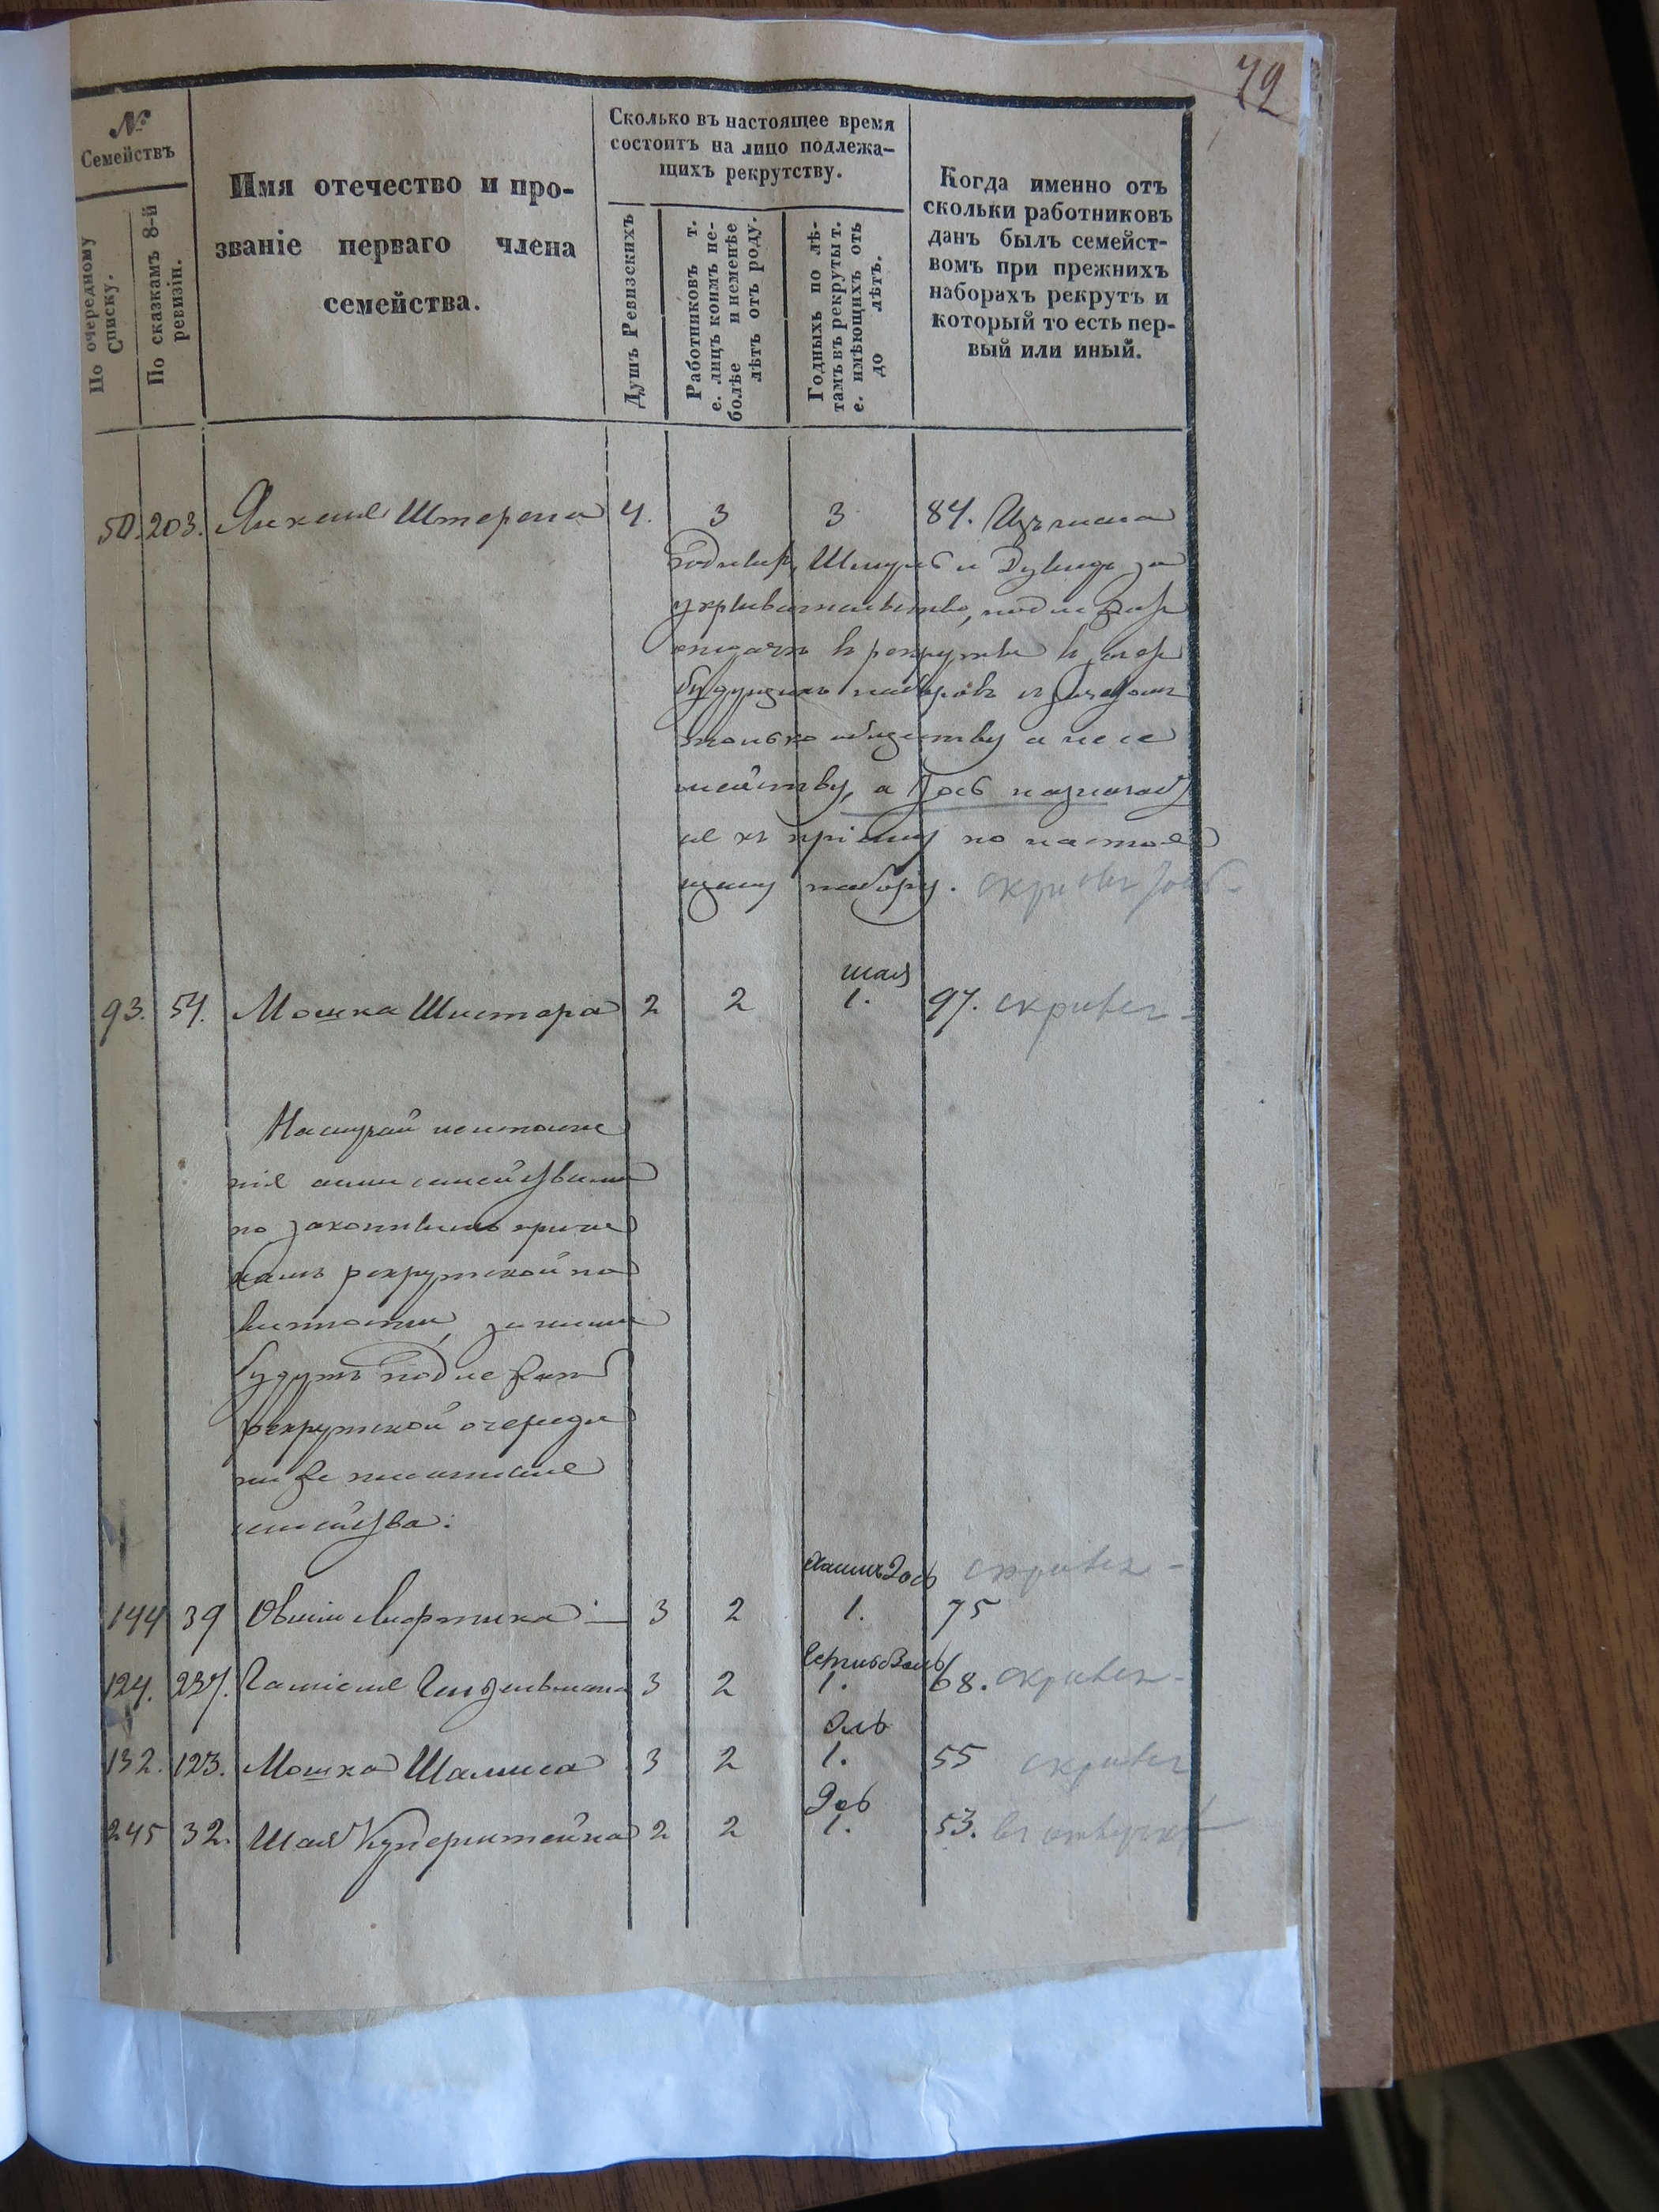 79
№
Семействъ
По очередному Списку.
По сказкамъ 8-й ревизіи.
Имя отечество и про-
званіе перваго члена
семейства.
Сколько въ настоящее время
состоитъ на лицо подлежа-
щихъ рекрутству.
Душъ Ревизскихъ
Работниковъ т.
е. лицъ коимъ не-
болѣе и неменѣе
лѣтъ отъ роду.
Годныхъ по лѣ-
тамъ въ рекруты т.
е. имѣющихъ отъ
до лѣтъ.
Когда именно отъ
скольки работниковъ
данъ былъ семейст-
вомъ при прежнихъ
наборахъ рекрутъ и
который то есть пер-
вый или иный.
50. 203. Янкеля Штерена 4. 3 3 84. Изъ числа
годныхъ, Шмуль и Дувидъ за
укрывательство, подлежатъ
отдачи в рекруты в зачетъ
будущихъ наборовъ и зачетомъ
только обществу а не се
мейству, а Іось назначает
ся къ пріему по настоя
щему набору. скрывся Іось
шая
93. 54. Мошка Шистера 2 2 1. 97. скрывся
На случай непоступле
нія сими семействами
по законнымъ причи
намъ рекрутской по
винности, за ними
будутъ подлежать
рекрутской очереди
ниже писанные
семейства:
Хаимъ Іось скрывся
144 39 Овшія 3 2 1. 75
124. 237. 3 2 1. 68. скрывся
Эль
132. 123. Мошка Шамиса 3 2 1. 55 скрывся
Іось
245 32. Шая Куперштейна 2 2 1. 53.